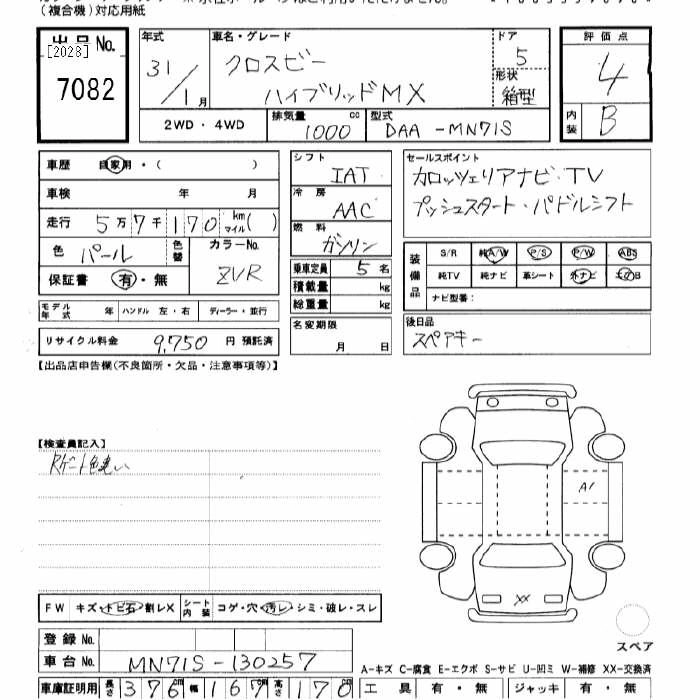 （複合機）対応用紙
出品No.
[2028]
7082
年式 車名・グレード ドア
31/1月 クロスビー ハイブリッドMX 5
形状 箱型
2WD・4WD 排気量 1000 cc 型式 DAA-MN71S
評価点
4
内装 B
車歴 自家用・( )
車検 年 月
走行 5万7千170 km マイル( )
色 パール 色替 カラーNo. ZVR
保証書 有・無
モデル年式 年 ハンドル 左・右 ディーラー・並行
リサイクル料金 9,750 円 預託済
シフト IAT
冷房 AAC
燃料 ガソリン
乗車定員 5 名
積載量 kg
総重量 kg
名変期限
月 日
セールスポイント
カロッツェリアナビ・TV
プッシュスタート・パドルシフト
装備品 S/R 純A/W P/S P/W ABS
純TV 純ナビ 革シート 外ナビ
ナビ型番：
後日品
スペアキー
【出品店申告欄(不良箇所・欠品・注意事項等)】
【検査員記入】
Rゲート色違い
A1
XX
スペア
FW キズ・トビ石・割レX シート内装 コゲ・穴・汚レ・シミ・破レ・スレ
登録No.
車台No. MN71S-130257
A-キズ C-腐食 E-エクボ S-サビ U-凹ミ W-補修 XX-交換済
車庫証明用 長さ 376 cm 幅 167 cm 高さ 170 工具 有・無 ジャッキ 有・無